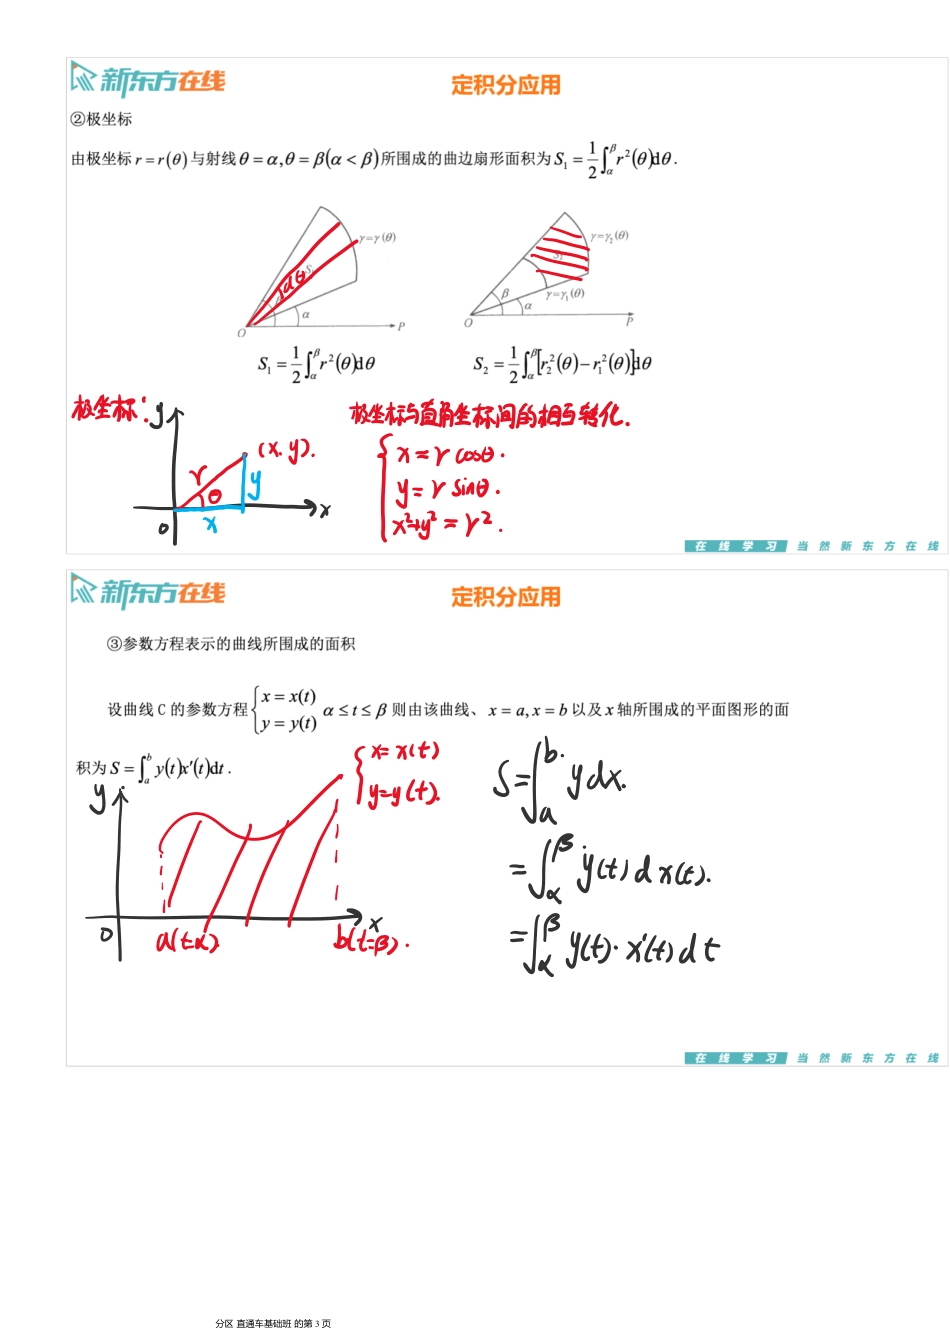 新东方在线
定积分应用
②极坐标
由极坐标 r = r(θ) 与射线 θ = α, θ = β(α < β) 所围成的曲边扇形面积为 S₁ = 1/2 ∫_α^β r²(θ)dθ .
γ=γ(θ)
S
dθ
α
O
P
γ=γ₂(θ)
S
β
γ=γ₁(θ)
α
O
P
S₁ = 1/2 ∫_α^β r²(θ)dθ
S₂ = 1/2 ∫_α^β [r₂²(θ) − r₁²(θ)]dθ
极坐标:
y
(x, y).
r
θ
y
x
x
0
极坐标与直角坐标间的相互转化.
x = r cosθ.
y = r sinθ.
x²+y² = r².
在线学习 当然新东方在线
新东方在线
定积分应用
③参数方程表示的曲线所围成的面积
设曲线 C 的参数方程 { x = x(t) y = y(t) α ≤ t ≤ β 则由该曲线、 x = a, x = b 以及 x 轴所围成的平面图形的面
积为 S = ∫_a^b y(t)x′(t)dt .
x = x(t)
y = y(t).
y
0
x
a(t=α)
b(t=β).
S = ∫_a^b y dx.
= ∫_α^β y(t) d x(t).
= ∫_α^β y(t)· x′(t) d t
在线学习 当然新东方在线
分区 直通车基础班 的第 3 页